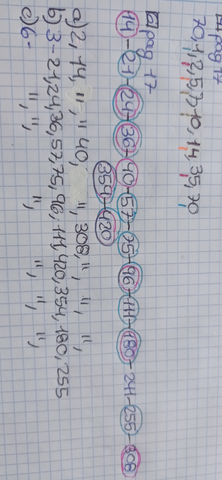 pag 17
70, 12, 57, 10, 14, 35, 70
pag 17
14-21-24-36-40-57-75-96-111-180-24-255-308
354-420
a) 2, 14, ,, ,, 40 ,, 308, ,, ,, ,,
b) 3-21,24,36,57,75,96,111,420,354,180,255
c) 6- ,, ,, ,, ,,